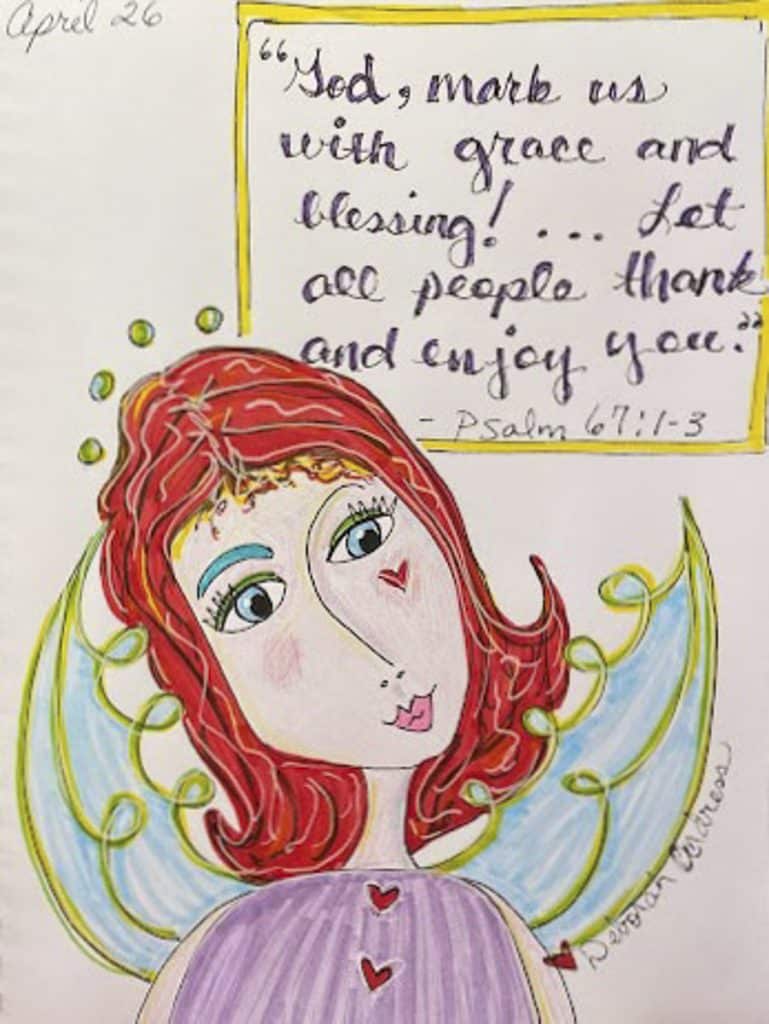 April 26
"God, mark us
with grace and
blessing! ... Let
all people thank
and enjoy you."
- Psalm 67:1-3
Deborah